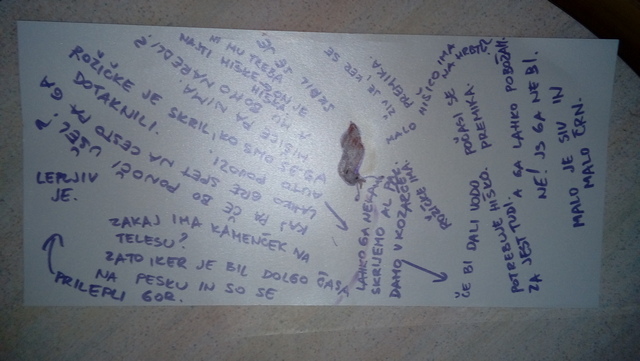 ROŽIČKE JE SKRIL, KO SMO GA
DOTAKNILI.
LEPLJIV
JE.
ZAKAJ IMA KAMENČEK NA
TELESU?
ZATO KER JE BIL DOLGO ČASA
NA PESKU IN SO SE
PRILEPLI GOR.
KAJ PA ČE BO PONOČI UŠEL?
LAHKO GRE SPET NA CESTO PA GA
AUTO POVOZI.
HIŠICE PA NIMA.
A MU BOMO NAREDILI?
NI MU TREBA
NAJTI HIŠKE
SKRIL SE JE.
ŽIV JE, KER SE
PREMIKA
MALO HIŠICO IMA
NA HRBTU
LAHKO GA NEKAM
SKRIJEMO AL PA
DAMO V KOZARČEK.
ROŽIČKE IMA.
ČE BI DALI VODO POČASI SE
PREMIKA.
POTREBUJE HIŠKO.
ZA JEST TUDI. A GA LAHKO POBOŽAM
NE! JS GA NE BI.
MALO JE SIV IN
MALO ČRN.